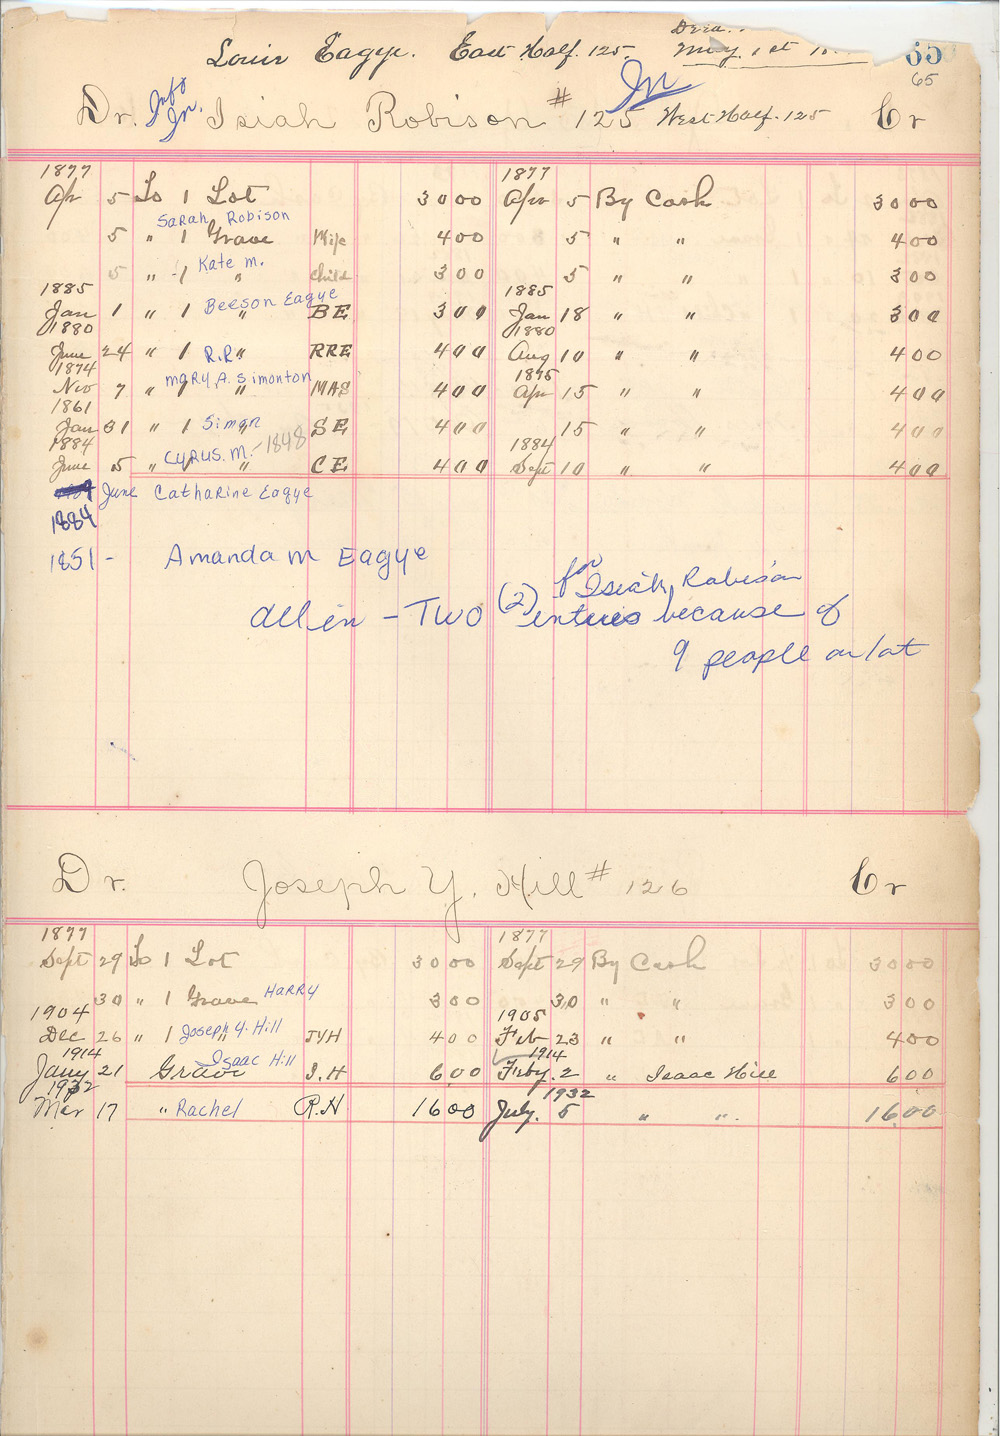 Louis Eagye. East Half. 125. Deed.
May. 1st
65
65
Dr. Info In. Isiah Robison # 125 In West Half. 125 Cr
1877 1877
Apr 5 To 1 Lot 30 00 Apr 5 By Cash 30 00
Sarah Robison
5 " 1 Grave Wife 4 00 5 " " 4 00
Kate M.
5 " 1 " Child 3 00 5 " " 3 00
1885 1885
Beeson Eagye
Jan 1 " 1 " BE 3 00 Jan 18 " " 3 00
1880 1880
June 24 " 1 R.R. " RRE 4 00 Aug 10 " " 4 00
1874 1875
Mary A. Simonton
Nov 7 " " " MAS 4 00 Apr 15 " " 4 00
1861
Jan 31 " 1 Simon " SE 4 00 15 " " 4 00
1884 1884
Cyrus. M. - 1848
June 5 " " " CE 4 00 Sept 10 " " 4 00
June Catharine Eagye
1884
1851 - Amanda M Eagye
for Isiah Robison
All in - Two (2) entries because of
9 people on lot
Dr. Joseph Y. Hill # 126 Cr
1877 1877
Sept 29 To 1 Lot 30 00 Sept 29 By Cash 30 00
30 " 1 Grave Harry 3 00 30 " " 3 00
1904 1905
Dec 26 " 1 Joseph Y. Hill " JYH 4 00 Feb 23 " " 4 00
1914 1914
Jany 21 Grave Isaac Hill I.H 6 00 Feby. 2 " Isaac Hill 6 00
1932 1932
Mar 17 " Rachel R.H 16 00 July. 5 " " 16.00